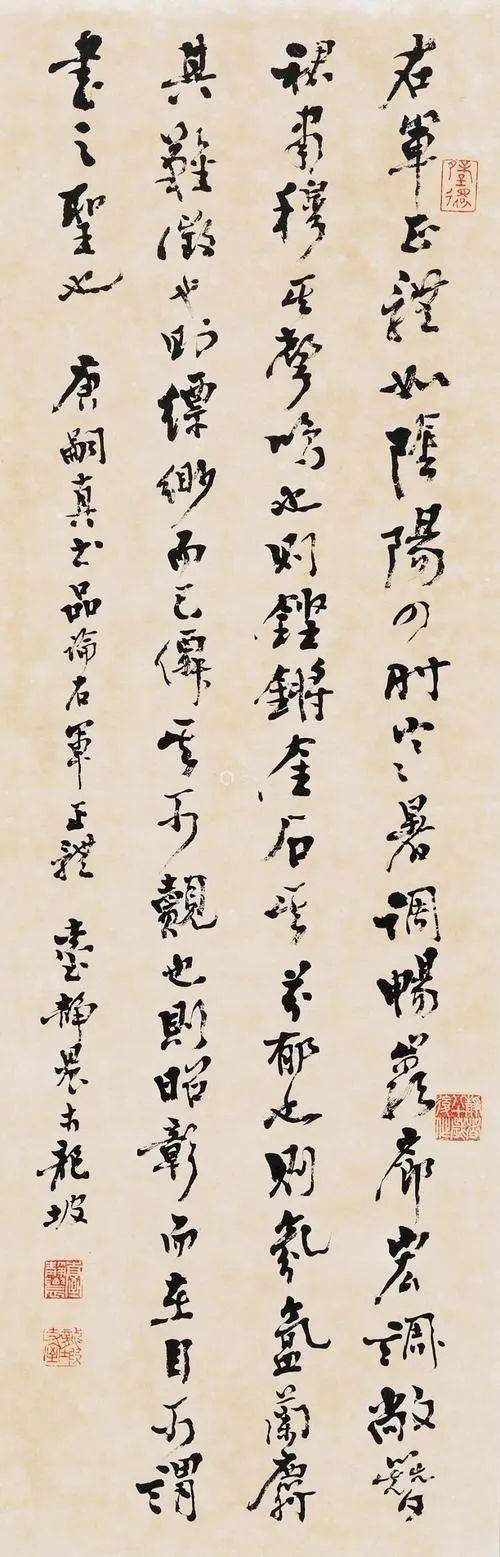 右軍正體如陰陽四時寒暑調暢巖廊宏調敞簪
裾肅穆其聲鳴也則鏗鏘金石其芬郁也則氛氳蘭麝
其難徵也則縹緲而已僊其可覿也則昭彰而在目可謂
書之聖也 唐嗣真書品論右軍正體 臺靜農於龍坡